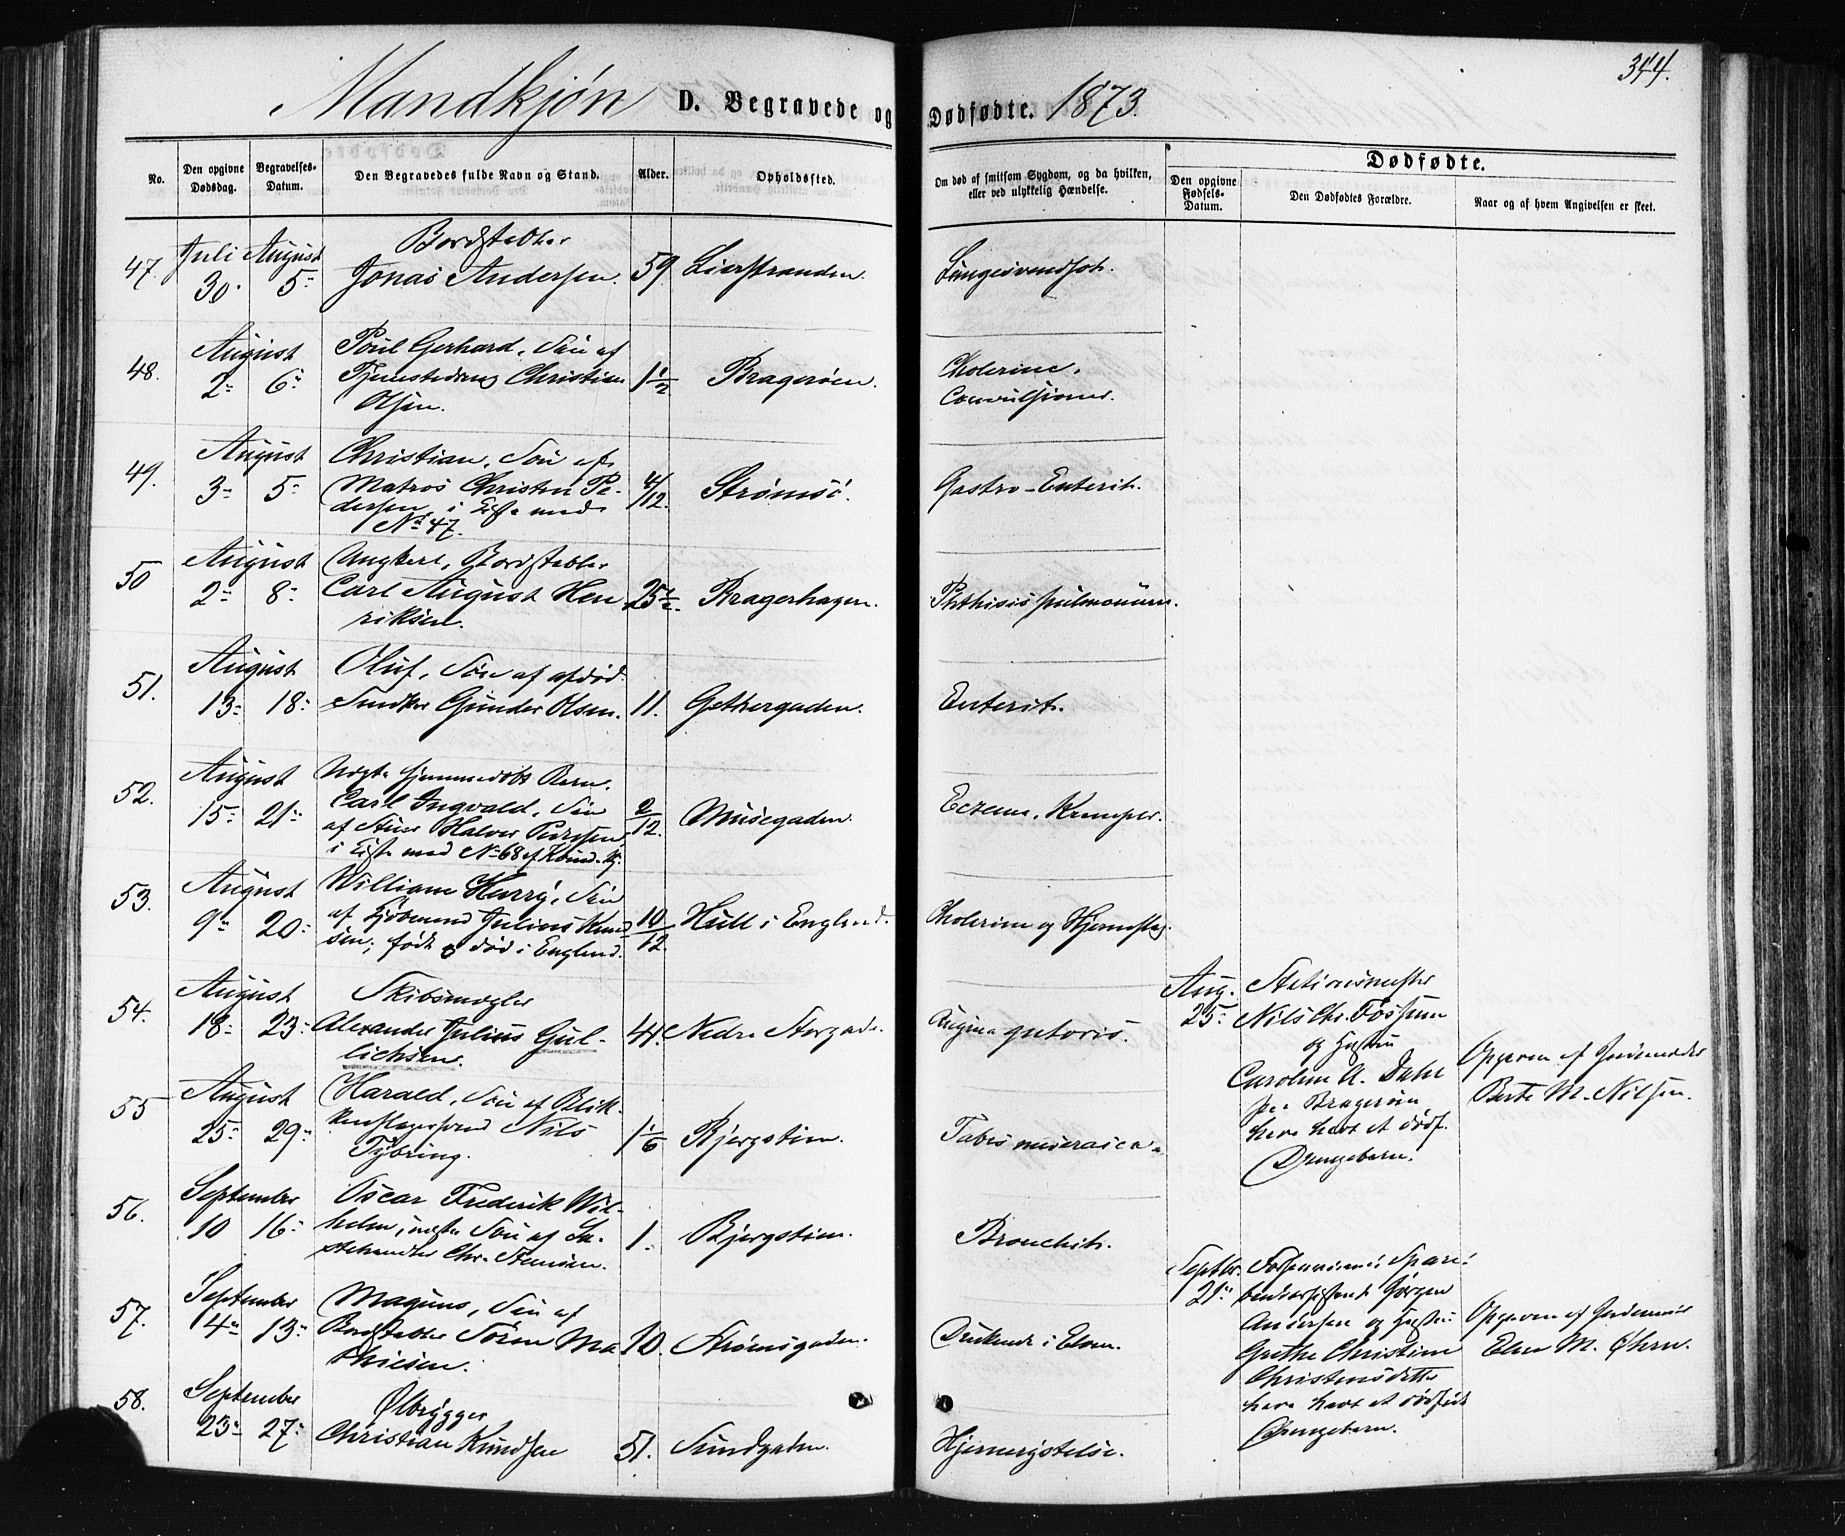 344.
Mandkjøn D. Begravede og Dødfødte. 1873.
No.
Den opgivne Dødsdag.
Begravelses-Datum.
Den Begravedes fulde Navn og Stand.
Alder.
Opholdssted.
Om død af smitsom Sygdom, og da hvilken, eller ved ulykkelig Hændelse.
Dødfødte.
Den opgivne Fødsels-Datum.
Den Dødfødtes Forældre.
Naar og af hvem Angivelsen er skeet.
47. Juli 30. August 5.
Bordstabler
Jonas Andersen. 59. Lierstranden.
48. August 2. 6.
Poul Gerhard, Søn af
Tjenestedreng Christian
Olsen. 1 1/2 Bragerøen. Cholerine.
Convulsioner.
49. August 3. 5.
Christian, Søn af
Matros Christen Pe-
dersen, i Kiste med
No 47. 4/12 Strømsø. Gastro-Enterit.
50 August 2. 8.
Ungkarl, Bordstabler
Carl August Hen
riksen. 25 1/2. Bragerhagen. Phthisis pulmonum.
51. August 13. 18.
Oluf, Søn af afdød
Snedker Gunder Olsen. 11. Gethergaden. Enterit.
52. August 15. 21.
Ægte hjemmedøbt Barn.
Carl Ingvald, Søn
af Stuer Halvor
i Kiste med No 68 af Kvind. Kj. 2/12. Eczema, Kramper.
53. August 9. 20.
William Harry, Søn
af Julius Knud
sen, født og død i England. 10/12. Hull i England. Cholerine og
54. August 18. 23.
Skibsmægler
Alexander Julius Gul-
lichsen. 41. Nedre Storgade. Angina
55 August 25. 29.
Harald, Søn af Blik-
kenslagersvend Nils
Tybring. 1 1/6 Bjergstien. Tabes meseraica.
56. September 10 16.
Oscar Frederik Wil-
helm, ægte Søn af La-
stehandler Chr. Stensen. 1. Bjergstien. Bronchit.
57. September 14. 13.
Magnus, Søn af
Bordstabler Søren Ma
thiesen. 10. Strømsgaden. Druknede i Elven.
58. September 23. 27.
Ølbrygger
Christian Knudsen 51. Sundgaden. Hjernerystelse.
Aug. 25.
Stationsmester
Nils Chr. Fossum
og Hustru
Caroline A. Dahl
paa Bragerøen
have havt et dødf.
Drengebarn.
Opgiven af Jordemoder
Berte M. Nilsen.
Septbr. 21.
Spare-
Jørgen
Andersen og Hustru
Grethe Christine
Christensdatter
have havt et dødfødt
Drengebarn.
Opgiven af Jordemoder
Elen M. Øhrn.